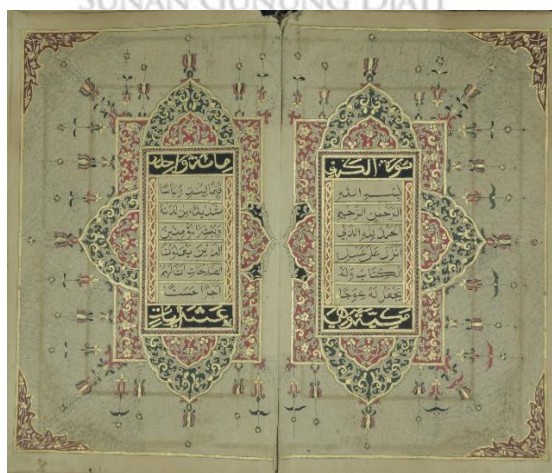 SUNAN GUNUNG DJATI
سورة الكهف
بسم الله
الرحمن الرحيم
الحمد لله الذي
انزل على عبده
الكتاب ولم
يجعل له عوجا
مكية وهي
مائة واحد
قيما لينذر باسا
شديدا من لدنه
ويبشر المؤمنين
الذين يعملون
الصلحات ان لهم
اجرا حسنا
عشر ايات